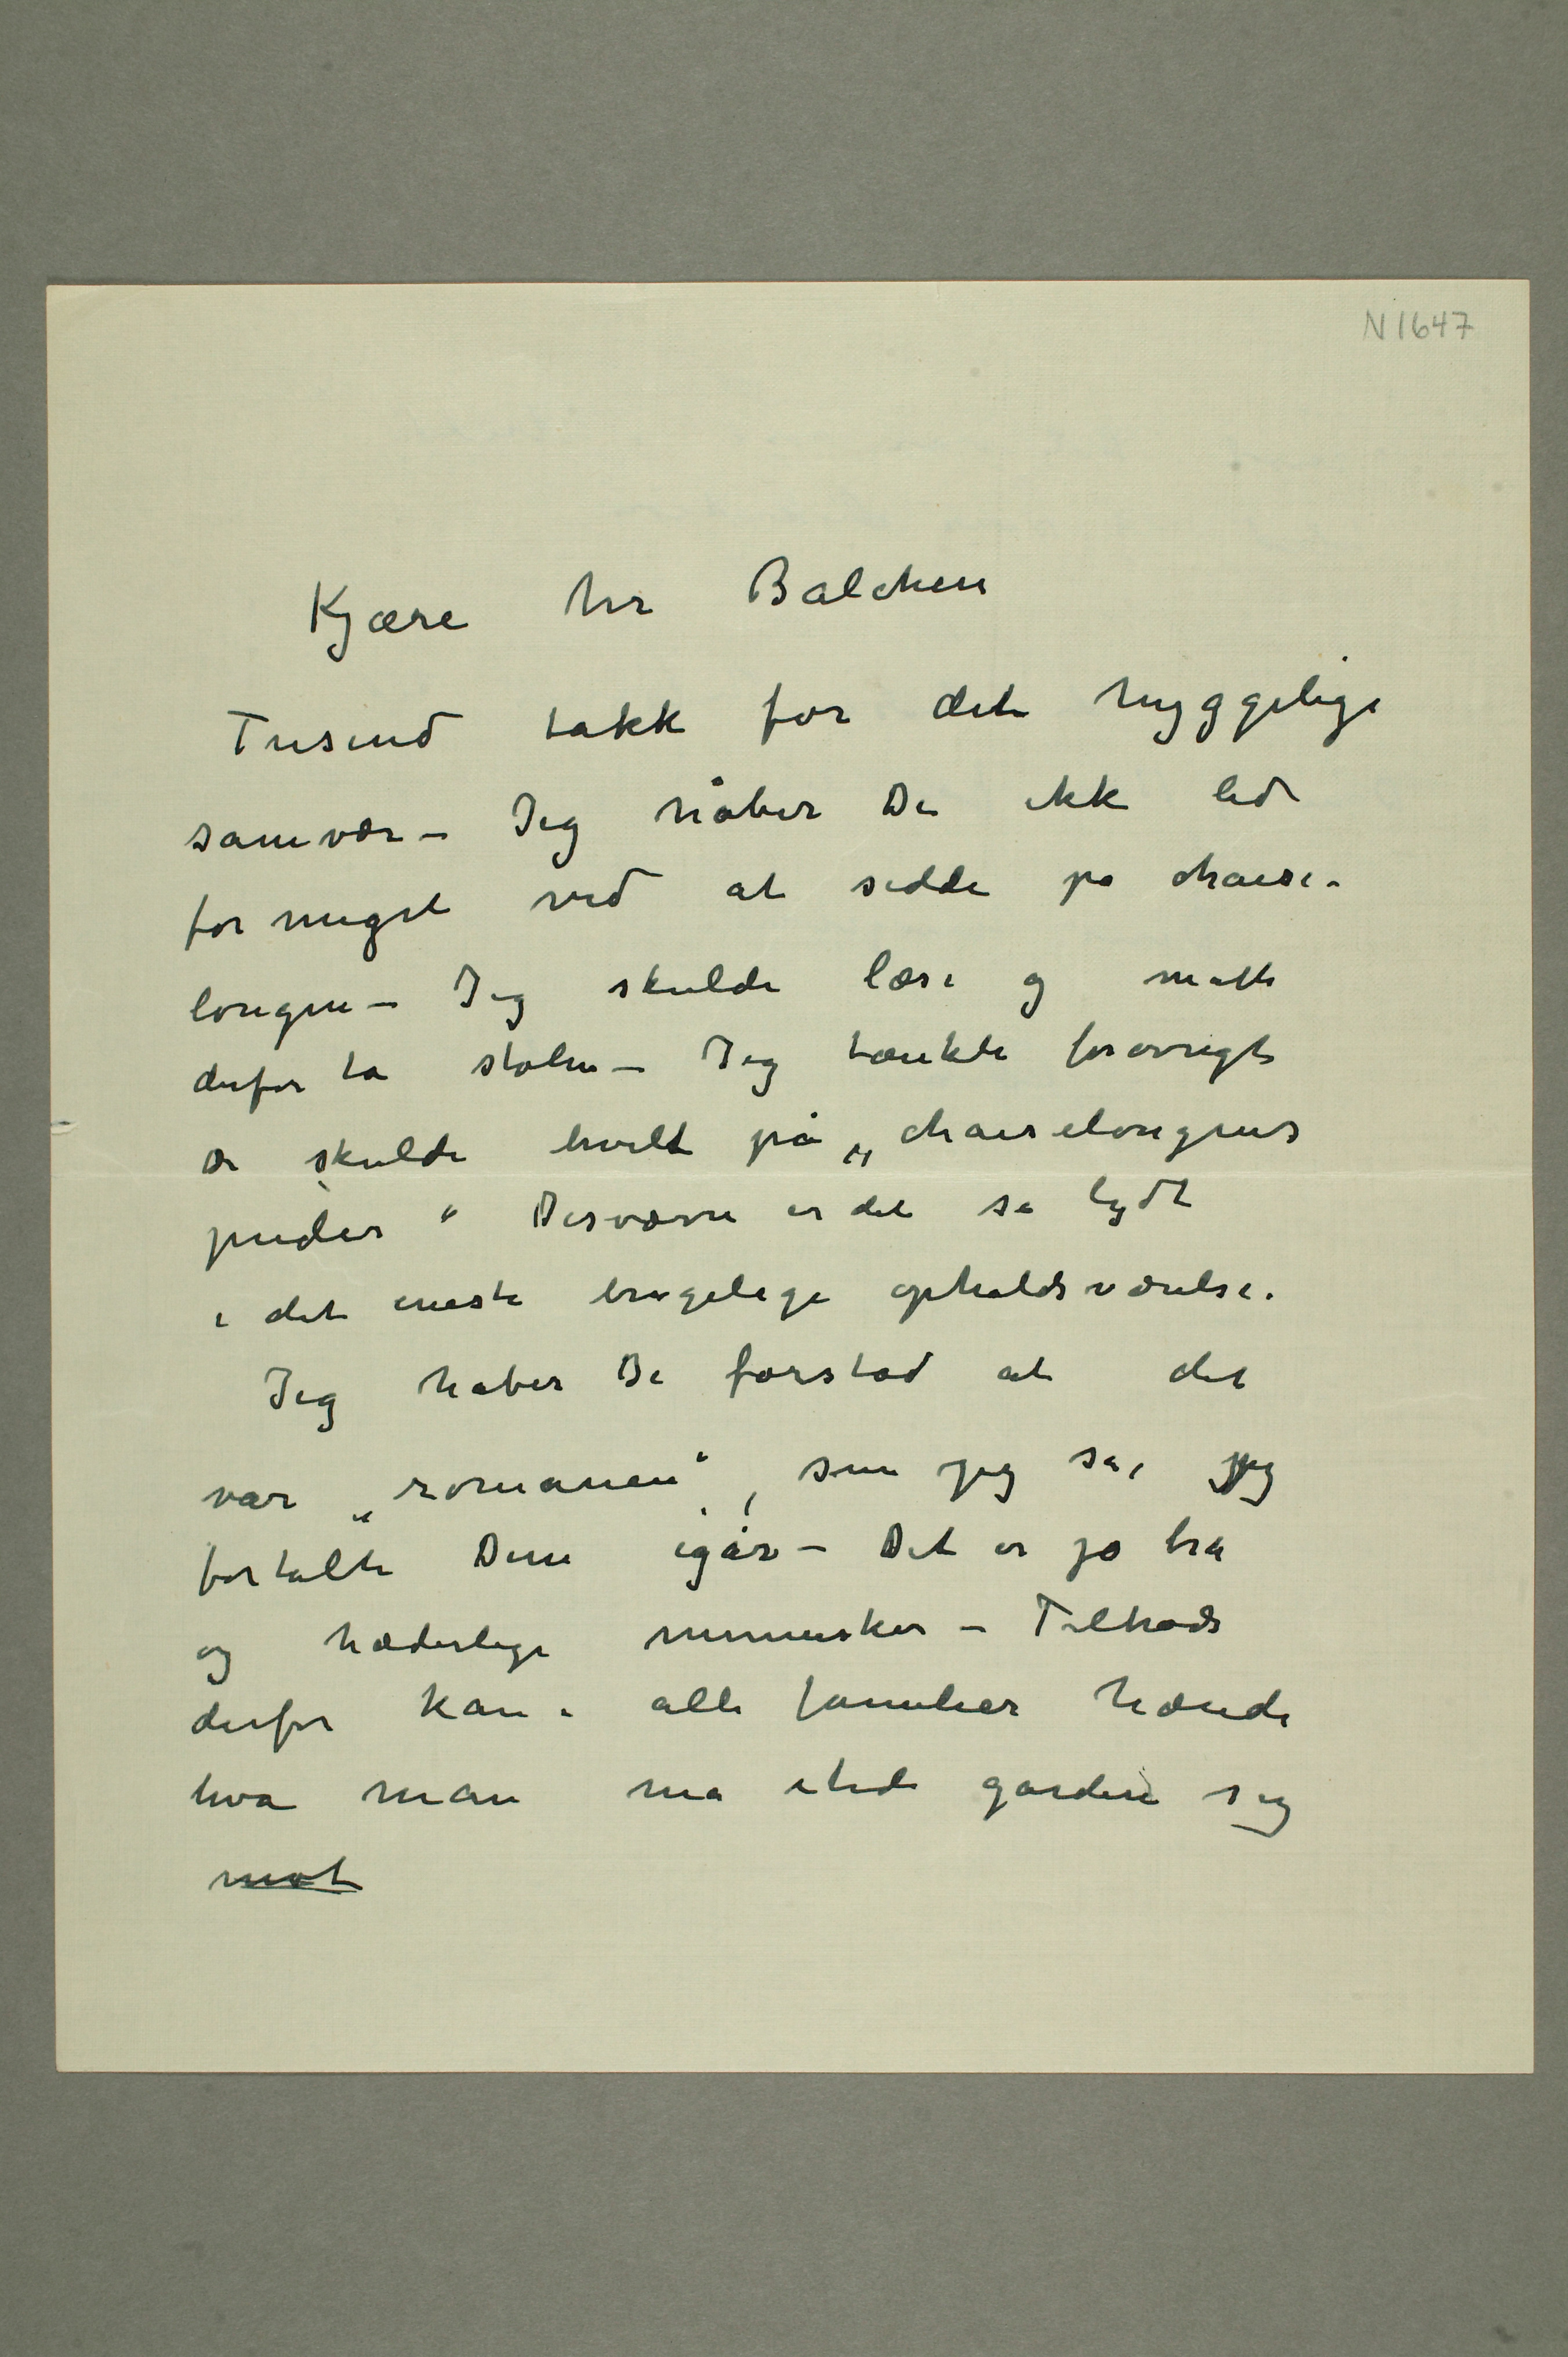 N 1647
Kjære hr Balchen
Tusind takk for det hyggelige
samvær – Jeg håber De ikke led
for meget ved at sidde på chaise-
longen – Jeg skulde læse og måtte
derfor ta stolen – Jeg tænkte forøvrigt
De skulde hvilt på „chaiselongens
puder“ Desværre er det så lydt
i det eneste brugelige opholdsværelse.
Jeg håber De forstod at det
var „romanen“, som jeg sa, jeg
fortalte Dem igår – Det er jo bra
og hæderlige mennesker – Tiltrods
derfor kan i alle familier hænde
hva man må itide gardere sig
mot